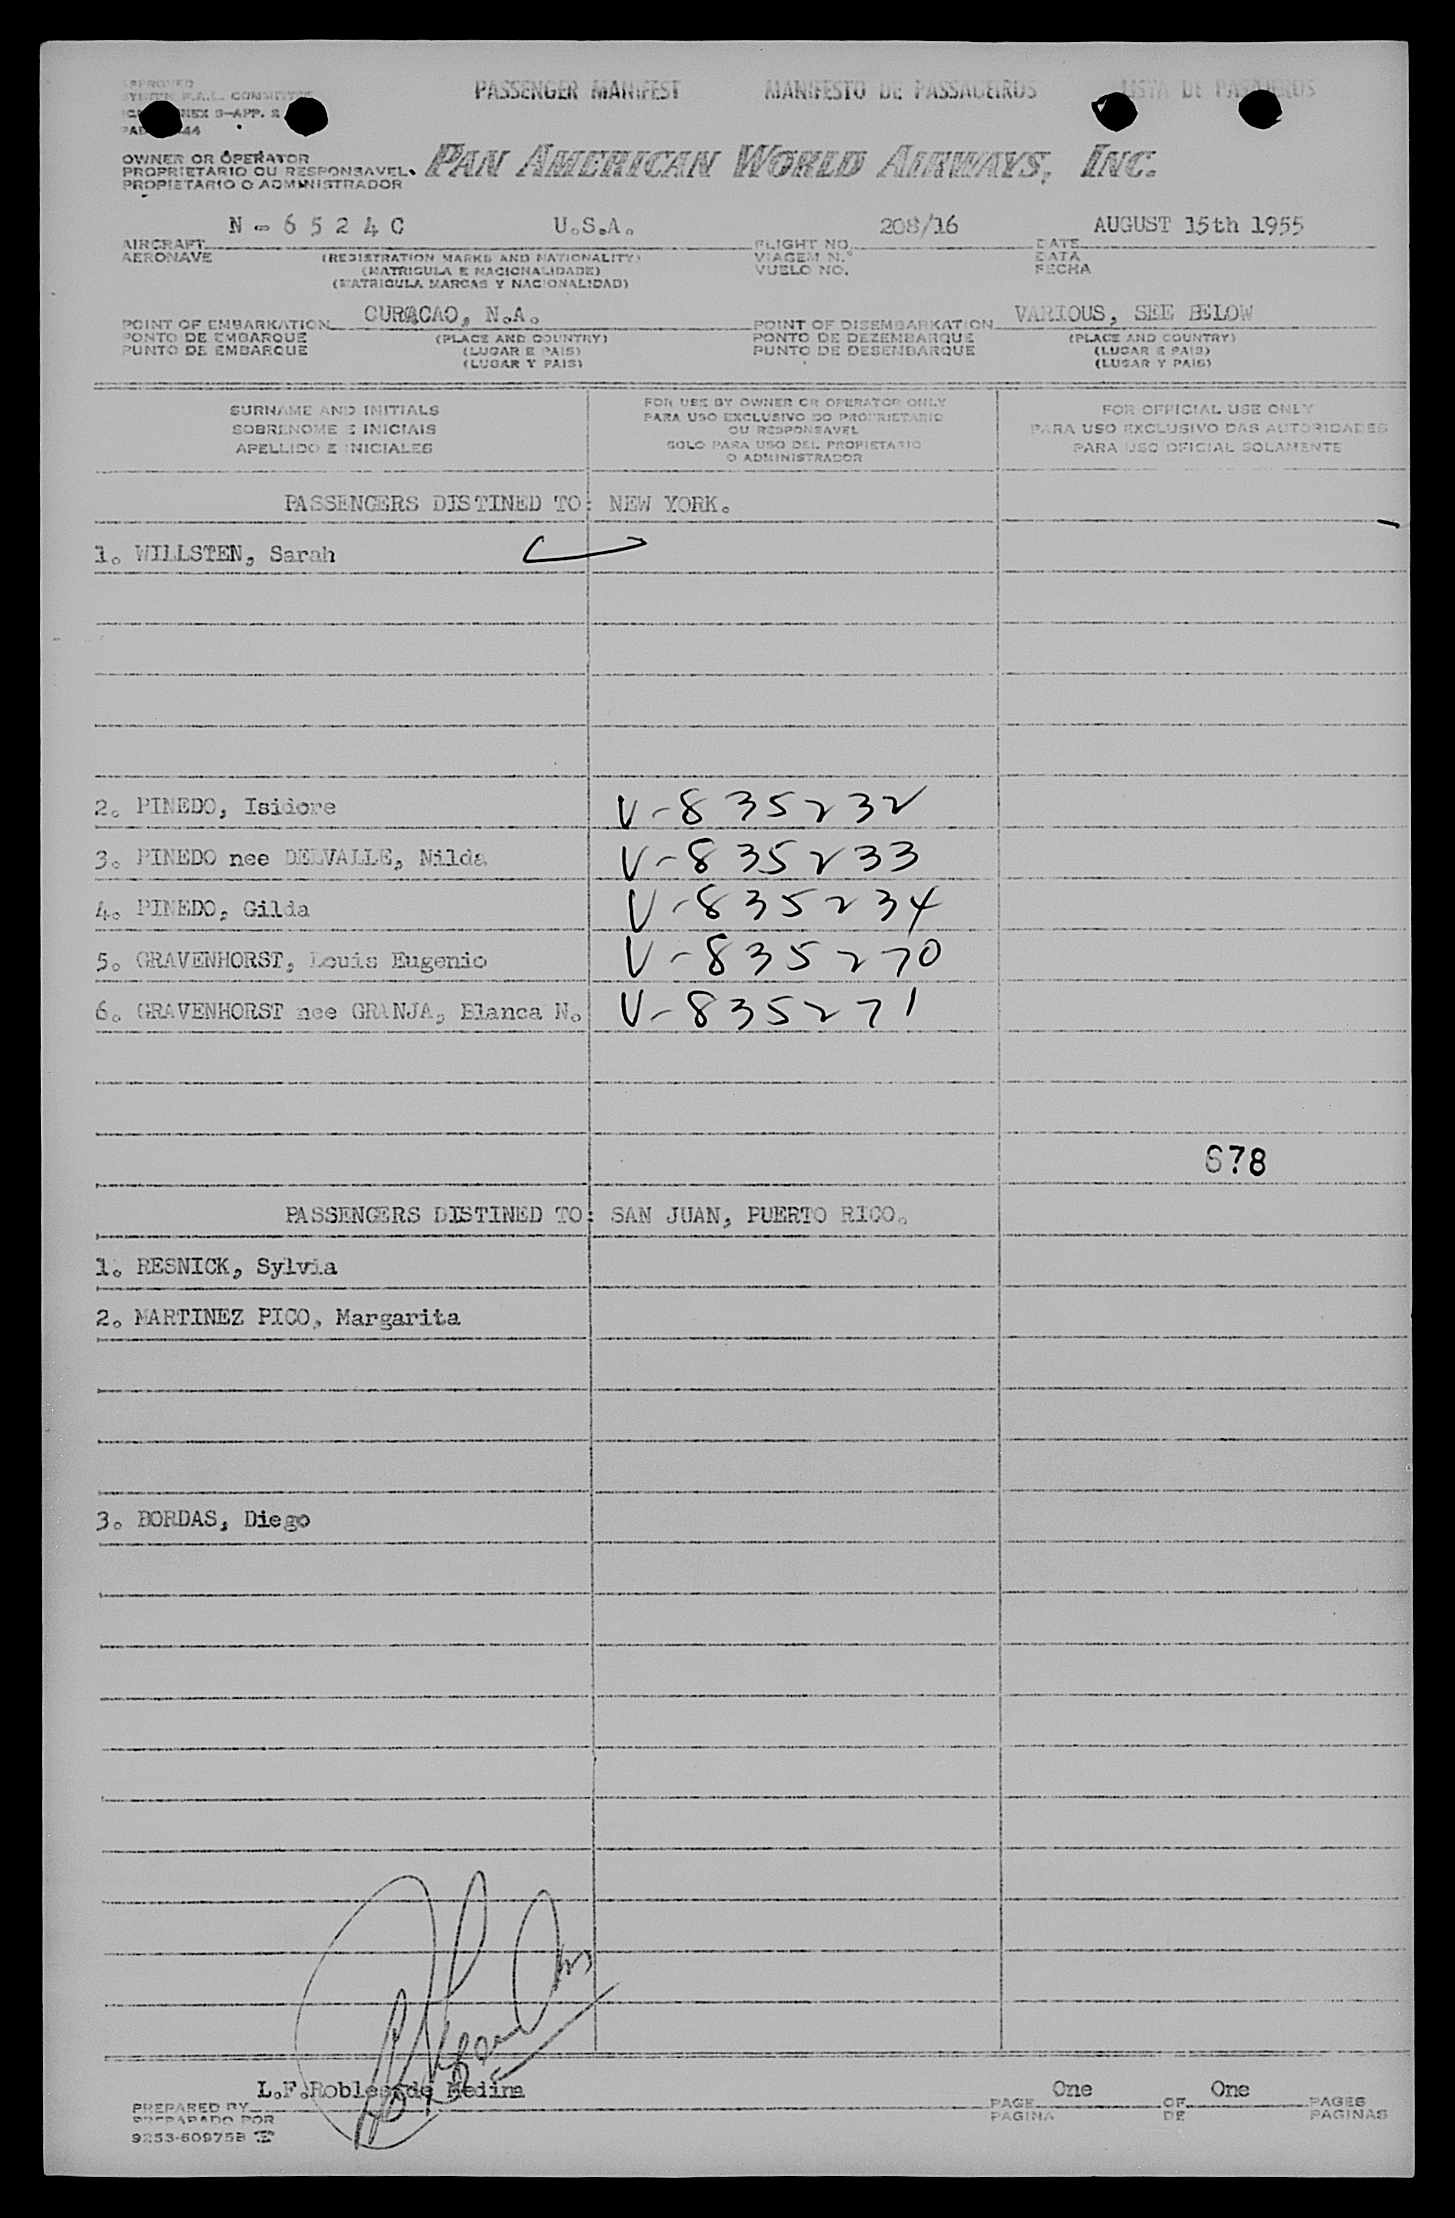 APPROVED
PASSENGER MANIFEST MANIFESTO DE PASSAGEIROS LISTA DE PASAJEROS
OWNER OR OPERATOR
PROPRIETARIO OU RESPONSAVEL
PROPIETARIO O ADMINISTRADOR
PAN AMERICAN WORLD AIRWAYS, INC.
N-6524C U.S.A. 208/16 AUGUST 15th 1955
AIRCRAFT FLIGHT NO. DATE
AERONAVE (REGISTRATION MARKS AND NATIONALITY) VIAGEM N.º DATA
(MATRICULA E NACIONALIDADE) VUELO NO. FECHA
(MATRICULA MARCAS Y NACIONALIDAD)
CURACAO, N.A. VARIOUS, SEE BELOW
POINT OF EMBARKATION POINT OF DISEMBARKATION
PONTO DE EMBARQUE (PLACE AND COUNTRY) PONTO DE DEZEMBARQUE (PLACE AND COUNTRY)
PUNTO DE EMBARQUE (LUGAR E PAIS) PUNTO DE DESEMBARQUE (LUGAR E PAIS)
(LUGAR Y PAIS) (LUGAR Y PAIS)
SURNAME AND INITIALS
SOBRENOME E INICIAIS
APELLIDO E INICIALES
FOR USE BY OWNER OR OPERATOR ONLY
PARA USO EXCLUSIVO DO PROPRIETARIO
OU RESPONSAVEL
SOLO PARA USO DEL PROPIETARIO
O ADMINISTRADOR
FOR OFFICIAL USE ONLY
PARA USO EXCLUSIVO DAS AUTORIDADES
PARA USO OFICIAL SOLAMENTE
PASSENGERS DISTINED TO: NEW YORK.
1. WILLSTEN, Sarah
2. PINEDO, Isidore V-835232
3. PINEDO nee DELVALLE, Nilda V-835233
4. PINEDO, Gilda V-835234
5. GRAVENHORST, Louis Eugenio V-835270
6. GRAVENHORST nee GRANJA, Blanca N. V-835271
678
PASSENGERS DISTINED TO: SAN JUAN, PUERTO RICO.
1. RESNICK, Sylvia
2. MARTINEZ PICO, Margarita
3. BORDAS, Diego
L.F.Robles de Medina One One
PREPARED BY PAGE OF PAGES
PREPARADO POR PAGINA DE PAGINAS
9253-60975B